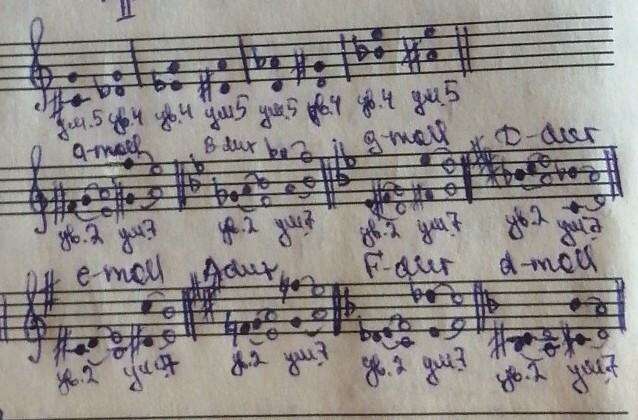 II
ум.5 ув.4 ув.4 ум5 ум.5 ув.4 ув.4 ум.5
a-moll B-dur g-moll D-dur
ув.2 ум7 ув.2 ум.7 ув.2 ум.7 ув.2 ум.7
e-moll A-dur F-dur d-moll
ув.2 ум.7 ув.2 ум.7 ув.2 ум.7 ув.2 ум.7